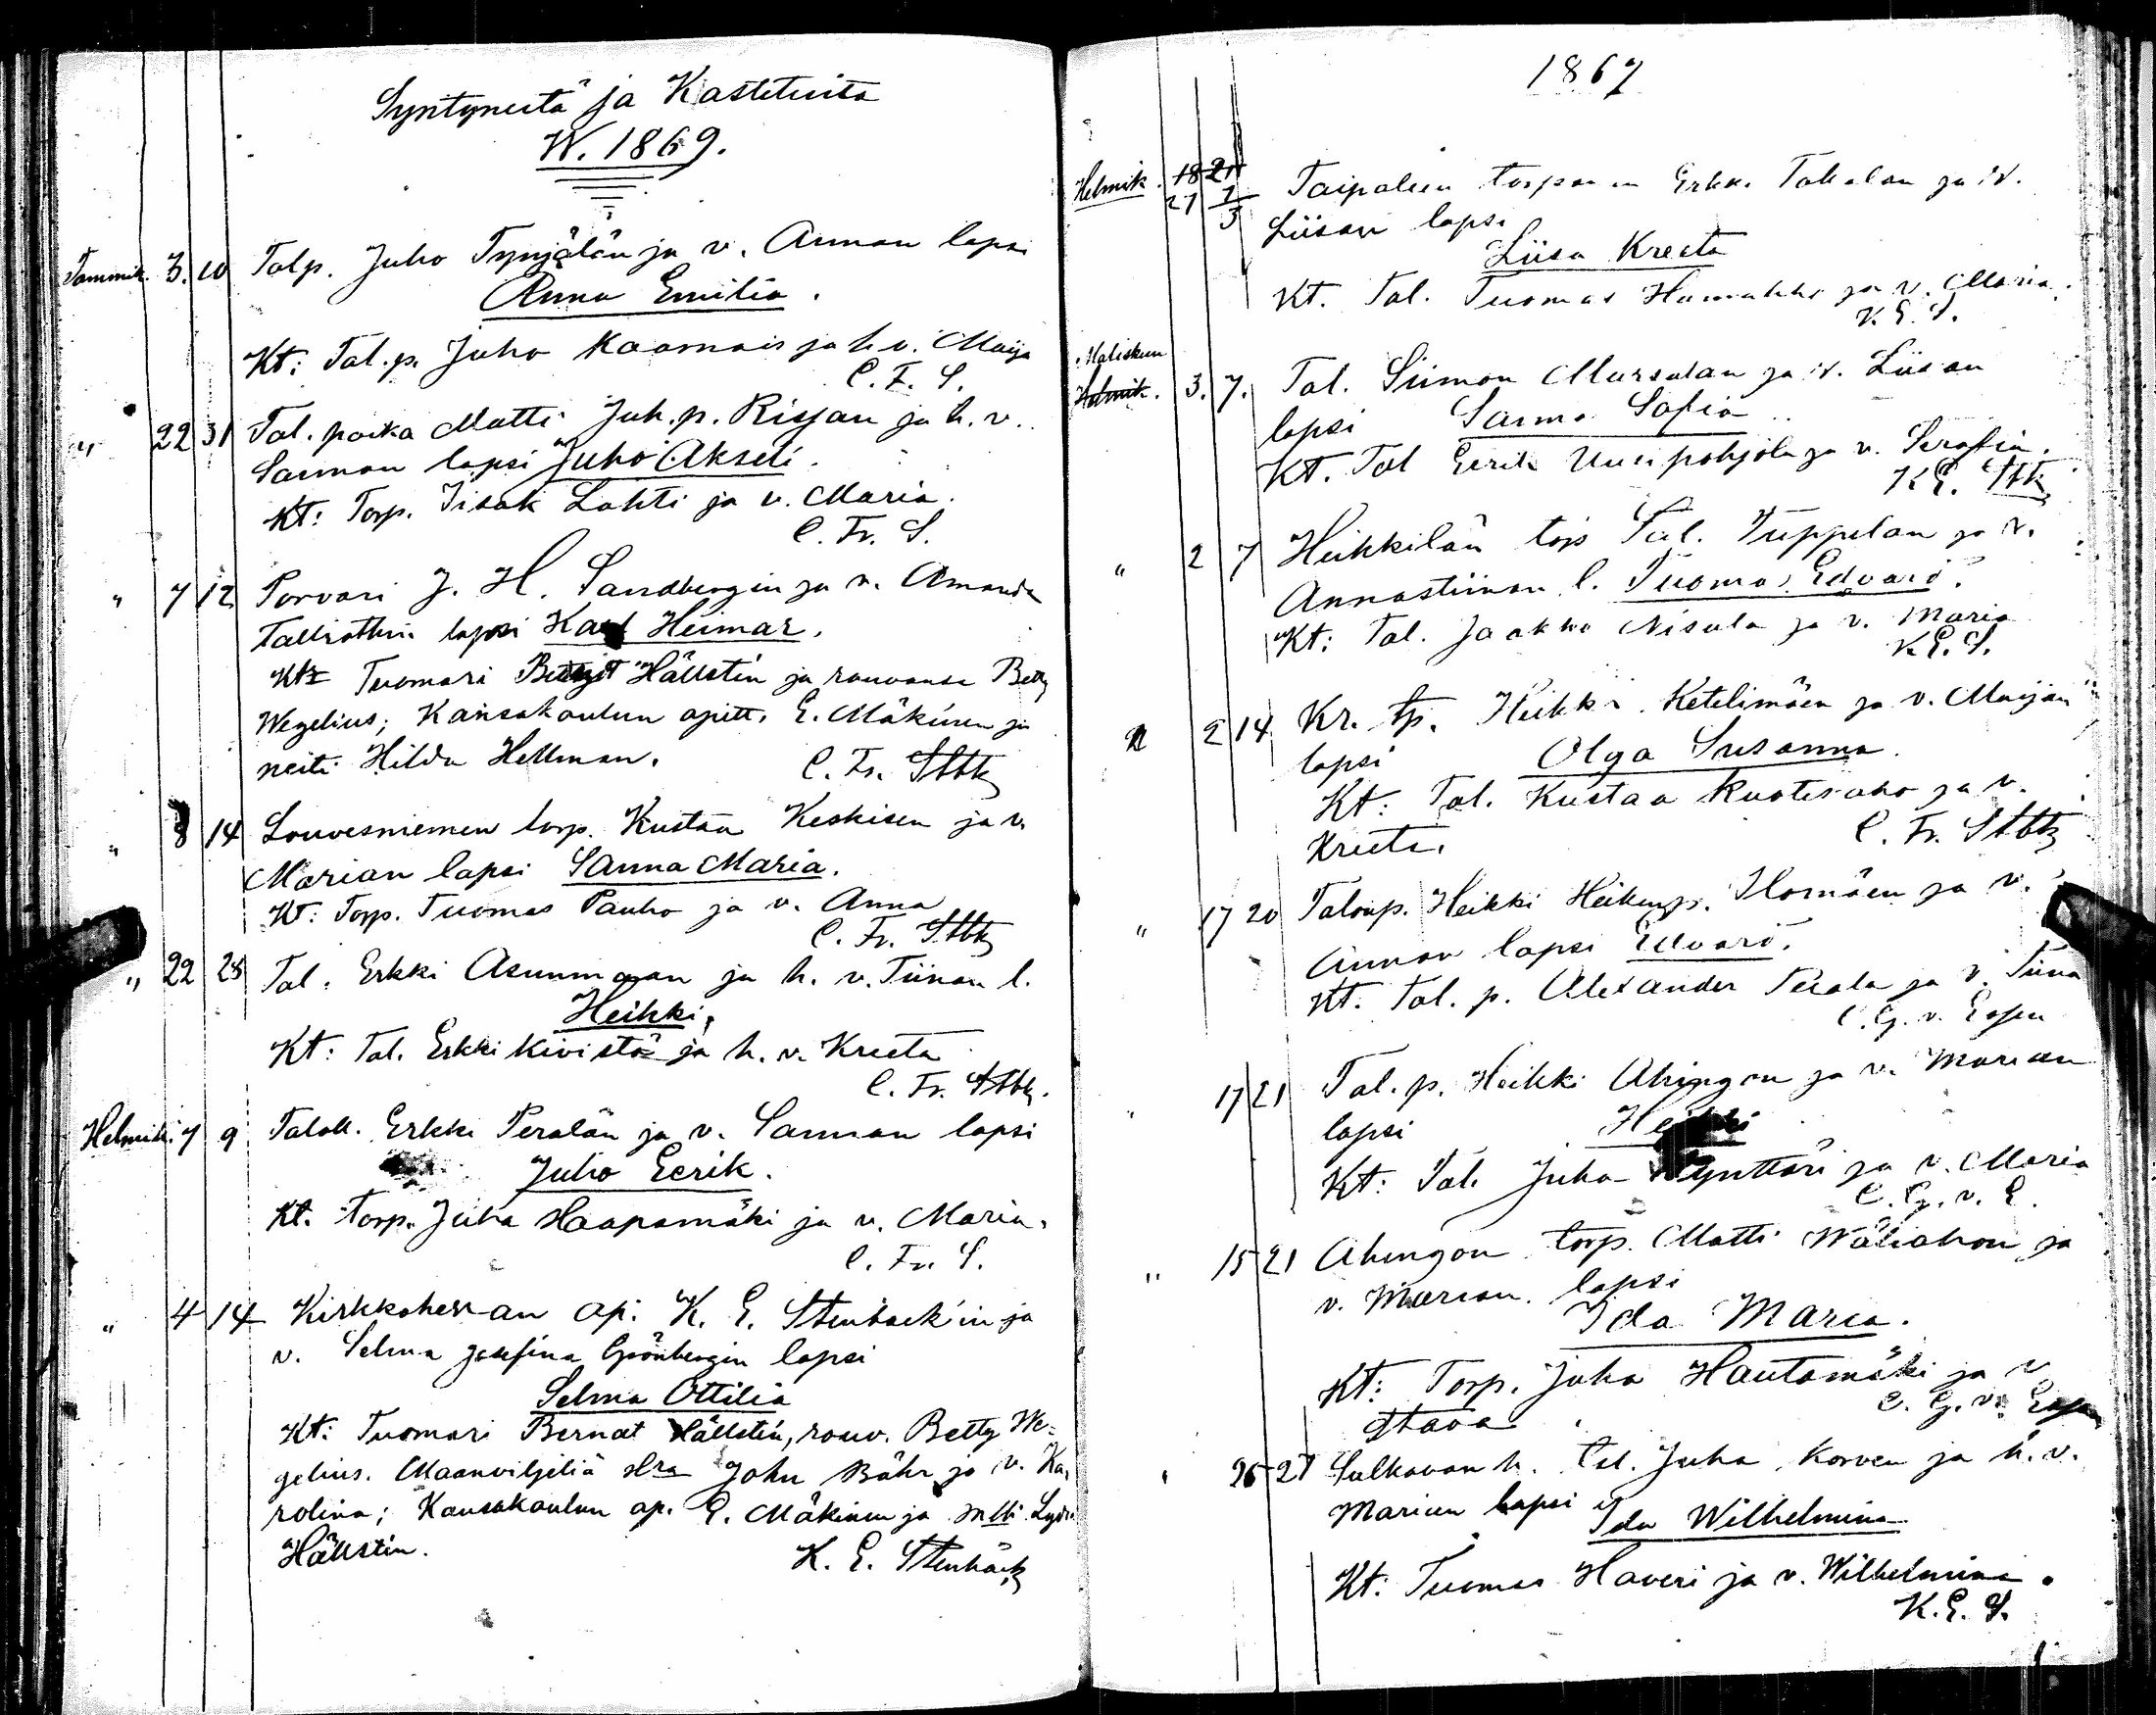 Syntyneitä ja Kastetuita
W. 1869.
Tammik. 3. 10 Talp. Juho Tynjälän ja v. Annan lapsi
Anna Emilia.
Kt: Tal.p. Juho Kaamais ja h.v. Maija
C. F. S.
" 22 31 Tal. poika Matti Juh.p. Risjan ja h.v.
Sannan lapsi Juho Akseli.
Kt: Torp. Iisak Lahti ja v. Maria.
C. Fr. S.
" 7 12 Porvari J. H. Sandbergin ja v. Amanda
lapsi Karl Heimar.
Kt: Tuomari Hällstén ja rouvansa Betty
Wegelius; Kansakoulun opitt. E. Mäkinen ja
neiti Hilda Hellman.
C. Fr. Stbk
" 8 14 Louvesniemen torp. Kustaa Keskisen ja v.
Marian lapsi Sanna Maria.
Kt: Torp. Tuomas Pauho ja v. Anna
C. Fr. Stbk
" 22 28 Tal. Erkki Asunmaan ja h. v. Tiinan l.
Heikki.
Kt: Tal. Erkki Kivistö ja h. v. Kreeta
C. Fr. Stbk.
Helmik. 7 9 Talok. Erkki Perälän ja v. Sannan lapsi
Juho Eerik.
Kt. Torp. Juha Haapamäki ja v. Maria.
C. Fr. S.
" 4 14 Kirkkoherran ap: K. E. Stenbäck'in ja
v. Selma Josefina Grönbergin lapsi
Selma Ottilia
Kt: Tuomari Bernat Hällstén, rouv. Betty We-
gelius. Maanviljeliä Hra John Bähr ja v. Ka-
rolina; Kansakoulun op. E. Mäkinen ja mlli Lydia
Hällstén.
K. E. Stenbäck
1867
Helmik. 18 21 Taipaleen torpparin Erkki Takalan ja v.
27 1/3 Liisan lapsi
Liisa Kreeta
Kt. Tal. Tuomas ja v. Maria.
K. E. S.
Maliskuu
Helmik. 3. 7. Tal. Siimon Mursulan ja v. Liisan
lapsi Sanna Sofia
Kt. Tal Eerik Uusipohjola ja v. Serafia.
K E. Stk
" 2 7 Heikkilän Tuppelan ja v.
Annastiinan l. Tuomas Edvard.
Kt: Tal. Jaakko Nisula ja v. Maria
K E. S.
" 2 14 Kr. tp. Heikki Ketelimäen ja v. Maijan
lapsi Olga Susanna.
Kt: Tal. Kustaa Ruotesaho ja v.
Kreeta.
C. Fr. Stbk
" 17 20 Talonp. Heikki Heikinp. Ilomäen ja v.
Annan lapsi Edvard.
Kt. Tal. p. Alexander Perala ja v. Tiina
C. G. v. Essen
" 17 21 Tal. p. Heikki Ahingon ja v. Marian
lapsi Heikki
Kt: Tal. Juha Kynttäri ja v. Maria
C. G. v. E.
" 15 21 Ahingon torp. Matti Wäliahon ja
v. Marian. lapsi
Ida Maria.
Kt: Torp. Juha Hautamäki ja v.
Staava
C. G. v. Essen
" 26 27 Sulkavan k. tal. Juha Korven ja h. v.
Marian lapsi Ida Wilhelmina
Kt: Tuomas Haveri ja v. Wilhelmina.
K. E. S.